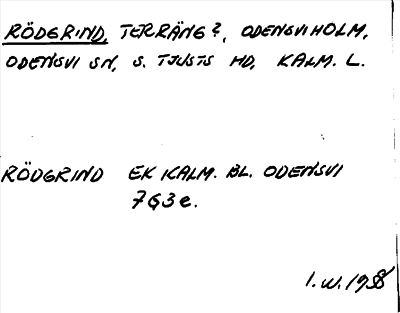 RÖDGRIND, TERRÄNG?, ODENSVIHOLM,
ODENSVI SN, S. TJUSTS HD, KALM. L.
RÖDGRIND EK KALM. BL. ODENSVI
7G3e.
I.W. 1958